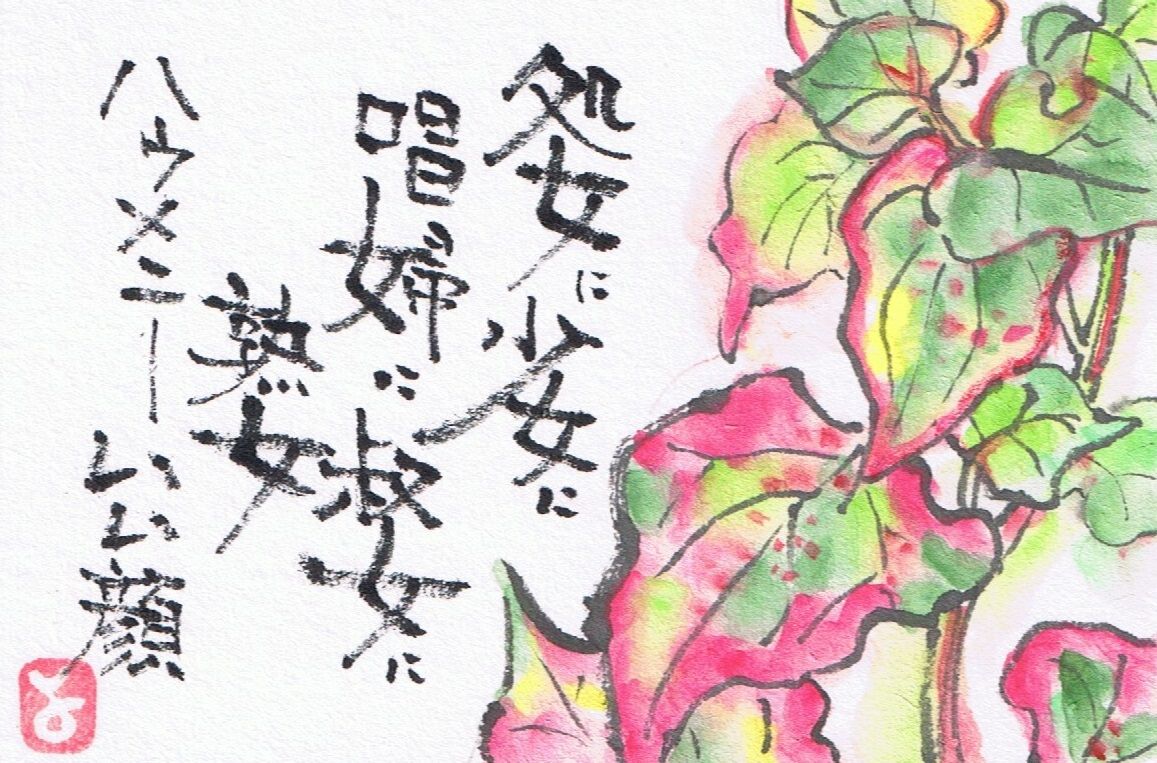 処女に少女に
唱婦に淑女に
熟女
ハウメニーいい顔